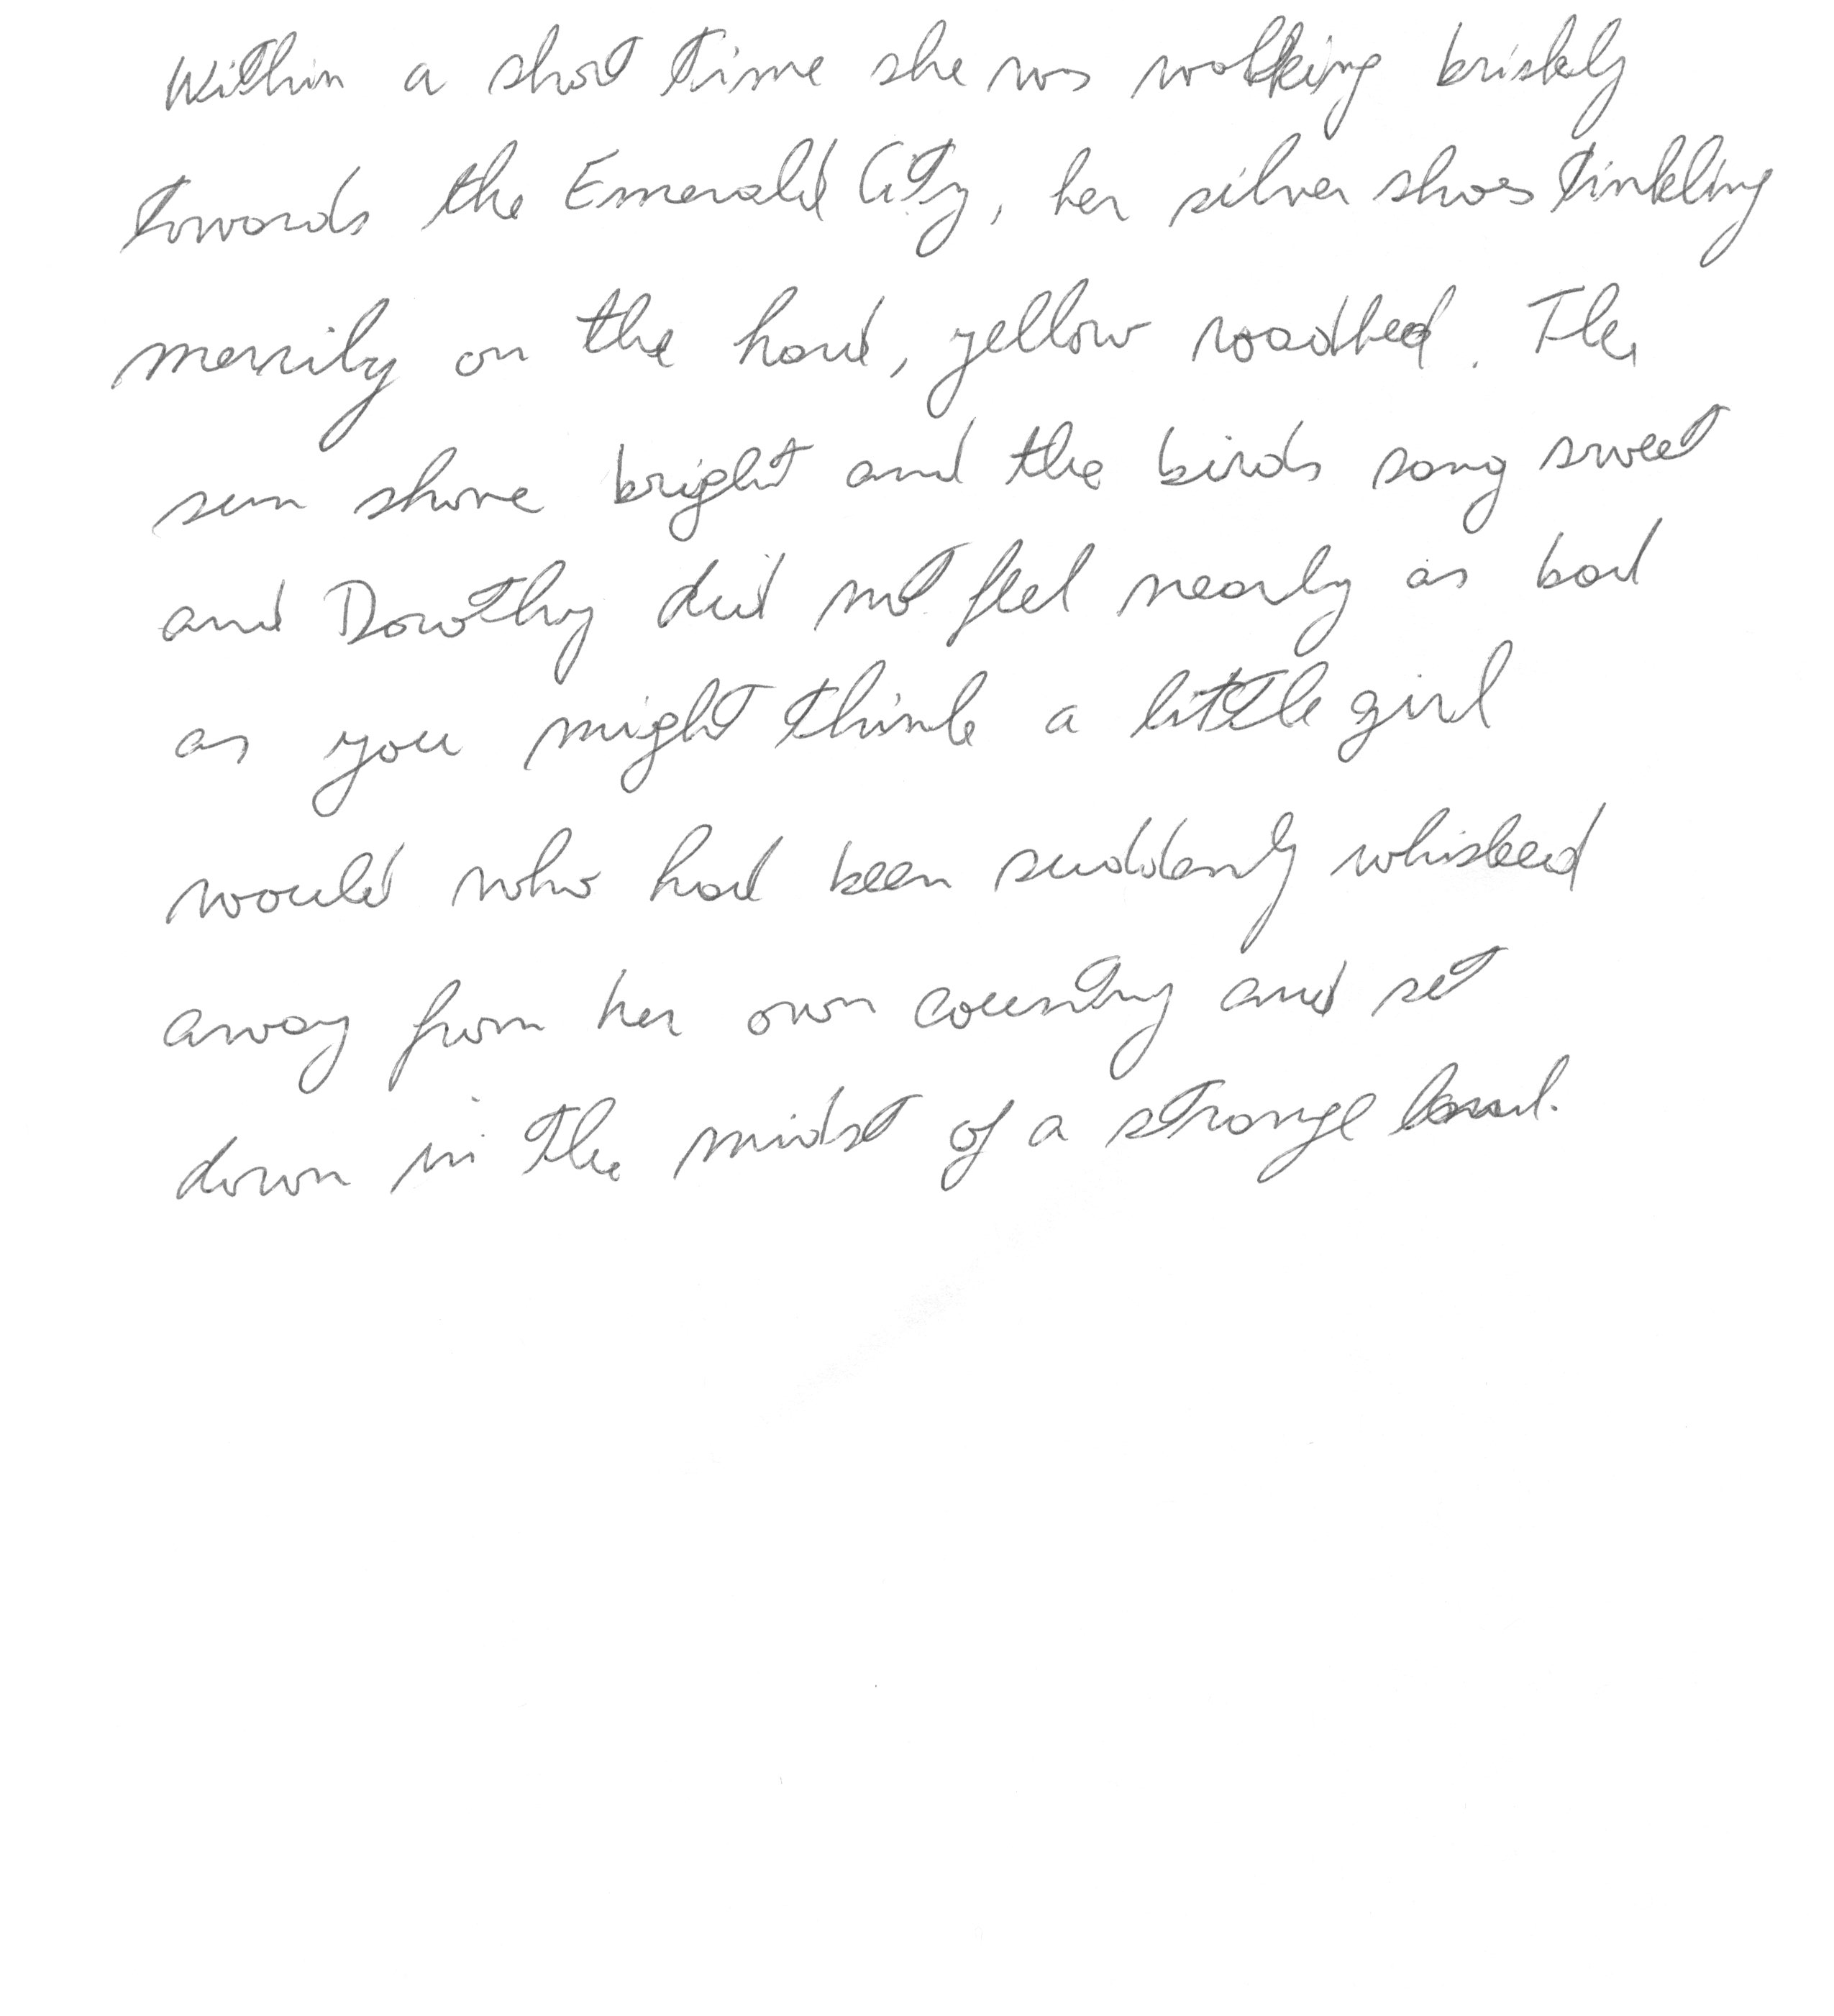 Within a short time she was walking briskly
towards the Emerald City, her silver shoes tinkling
merrily on the hard, yellow roadbed. The
sun shone bright and the birds sang sweet
and Dorothy did not feel nearly as bad
as you might think a little girl
would who had been suddenly whisked
away from her own country and set
down in the midst of a strange land.